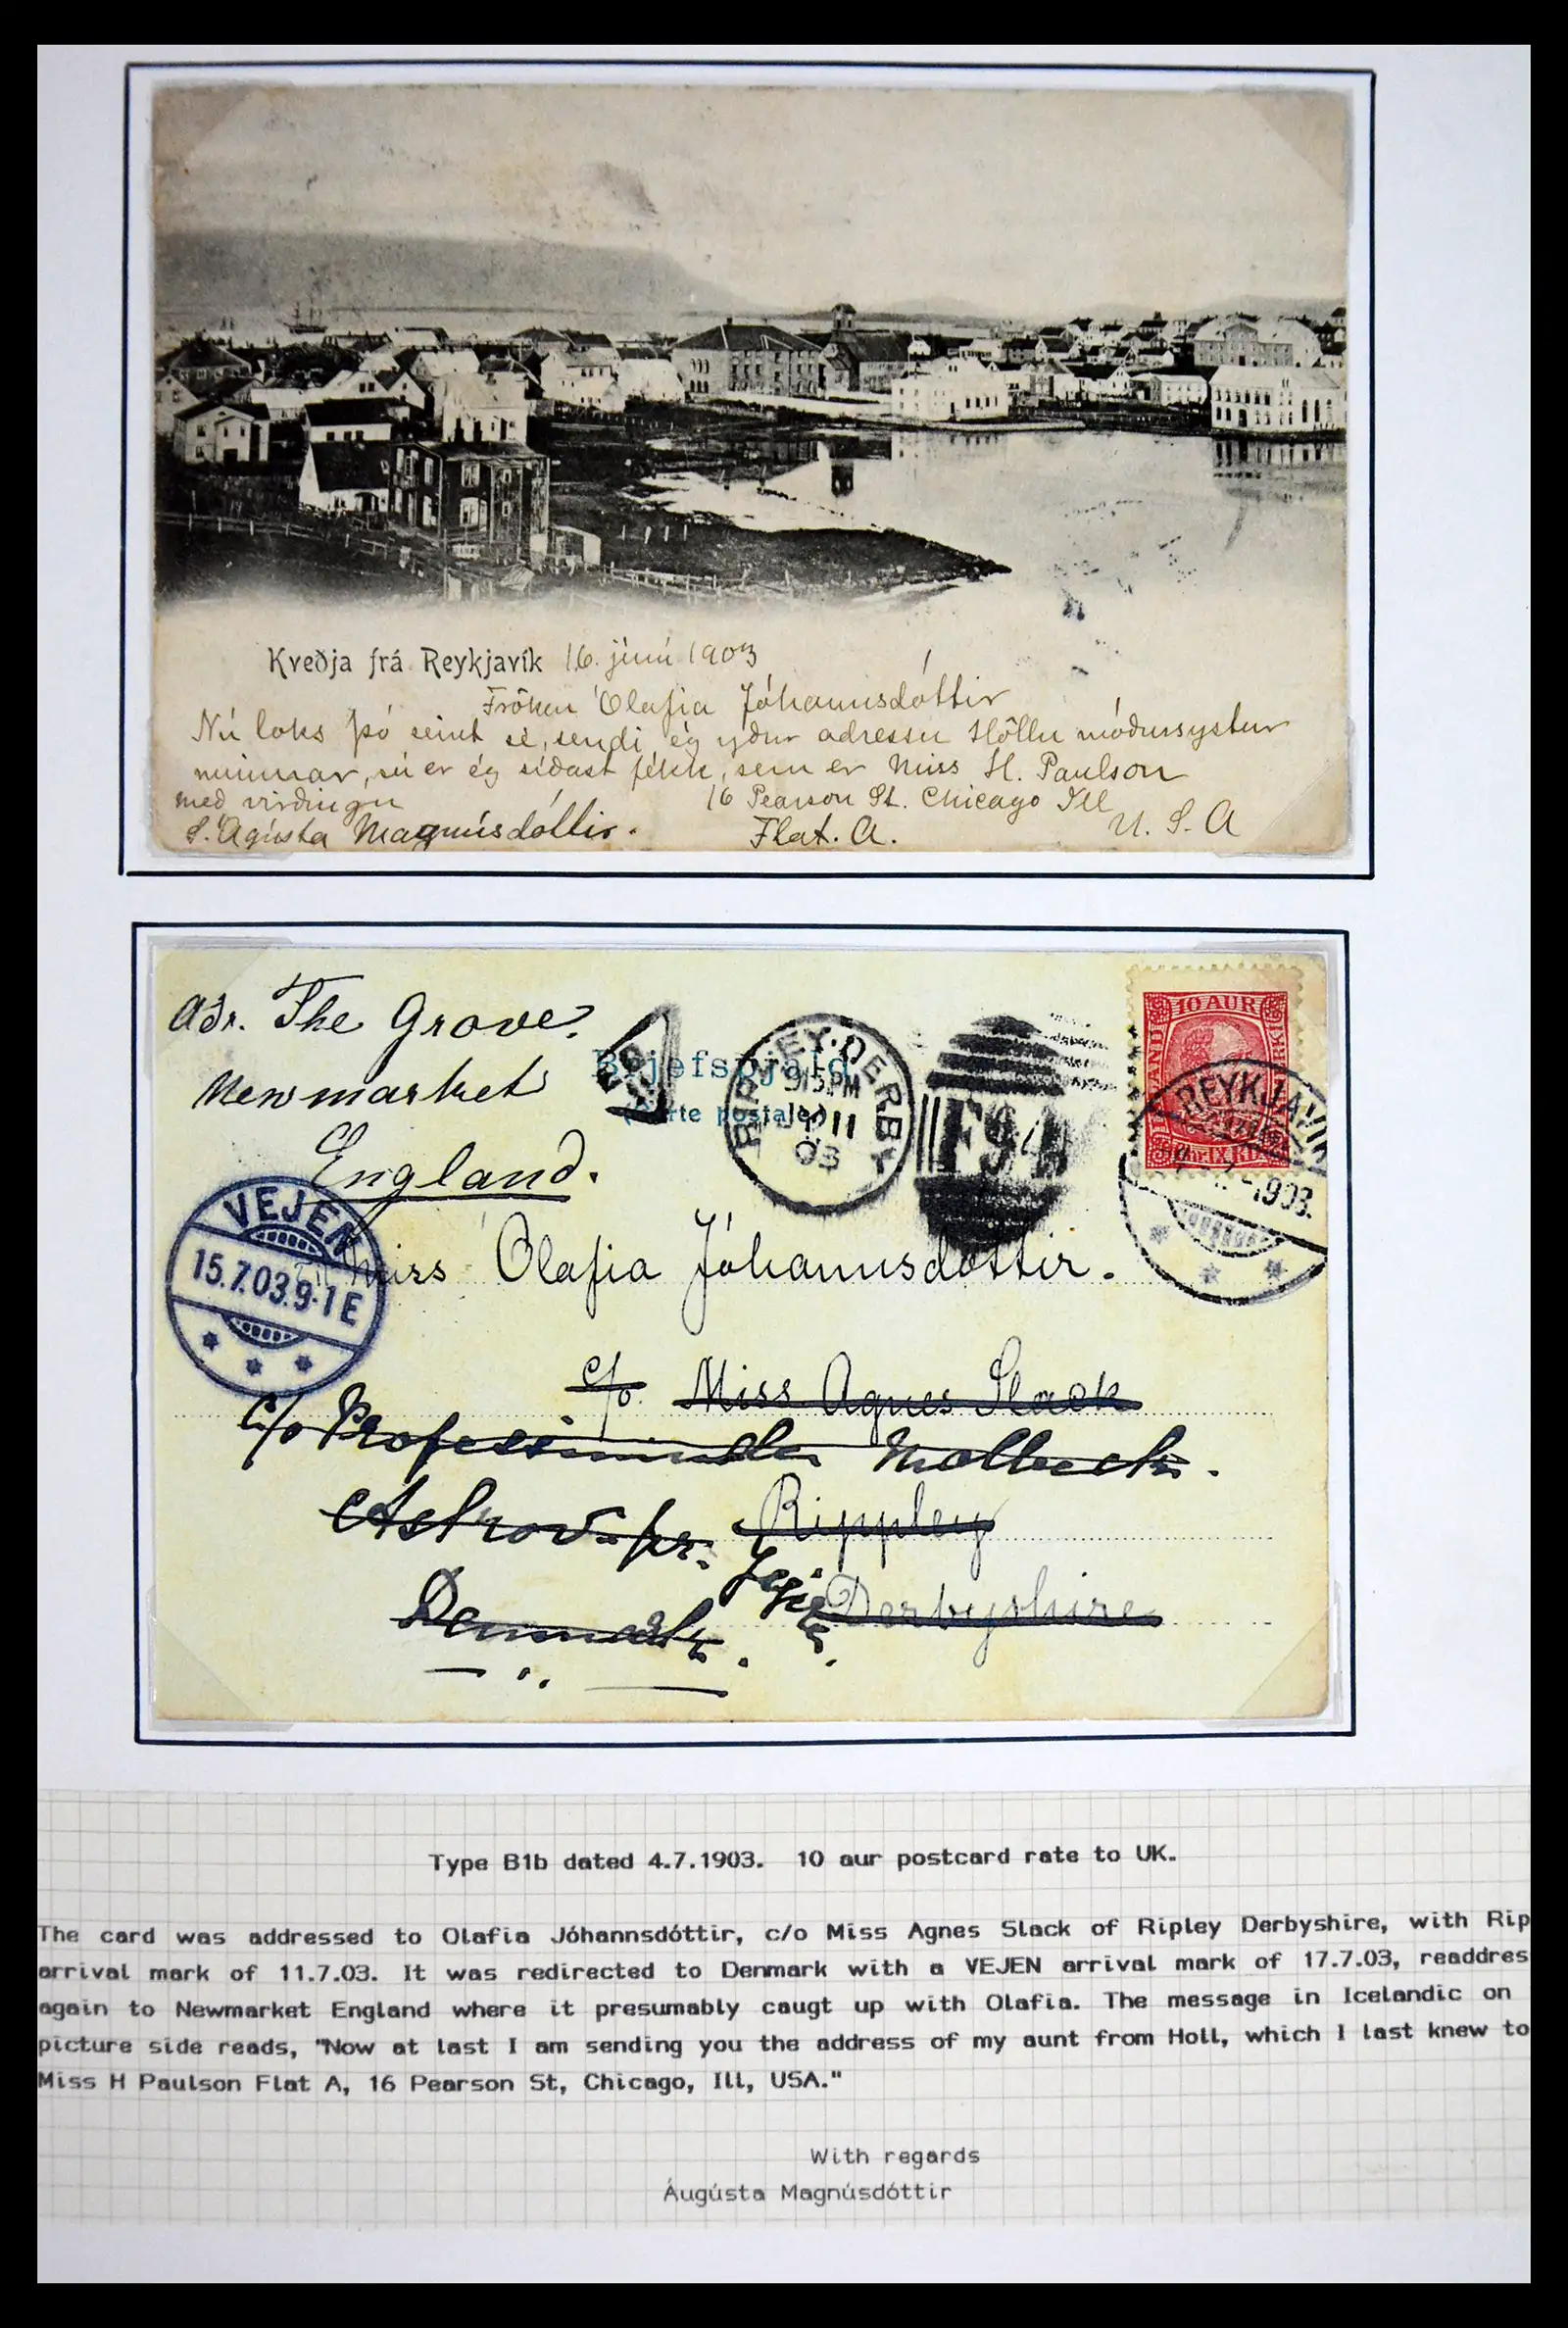 Kveðja frá Reykjavík 16. júní 1903
Fröken Ólafia Jóhannsdóttir
Nú loks þó seint sé, sendi ég yður adressu Höllu móðursystur
minnar, sú er ég síðast fékk, sem er Miss H. Paulson
með virðingu 16 Pearson St. Chicago Ill
S. Ágústa Magnúsdóttir. Flat. A. U. S. A
Adr. The Grove.
Newmarket
England.
Brjefspjald
(Carte postale)
RIPLEY·DERBY
915PM
11
03
F94
10 AUR
REYKJAVIK
-1903.
VEJEN
15.7.03.9-1E
Miss Ólafia Jóhannsdóttir.
c/o Miss Agnes Slack
c/o Molbech.
Askov pr. Rippley
Vejen Derbyshire
Denmark.
Type B1b dated 4.7.1903. 10 aur postcard rate to UK.
The card was addressed to Olafia Jóhannsdóttir, c/o Miss Agnes Slack of Ripley Derbyshire, with Rip
arrival mark of 11.7.03. It was redirected to Denmark with a VEJEN arrival mark of 17.7.03, readdres
again to Newmarket England where it presumably caugt up with Olafia. The message in Icelandic on
picture side reads, "Now at last I am sending you the address of my aunt from Holl, which I last knew to
Miss H Paulson Flat A, 16 Pearson St, Chicago, Ill, USA."
With regards
Áugústa Magnúsdóttir